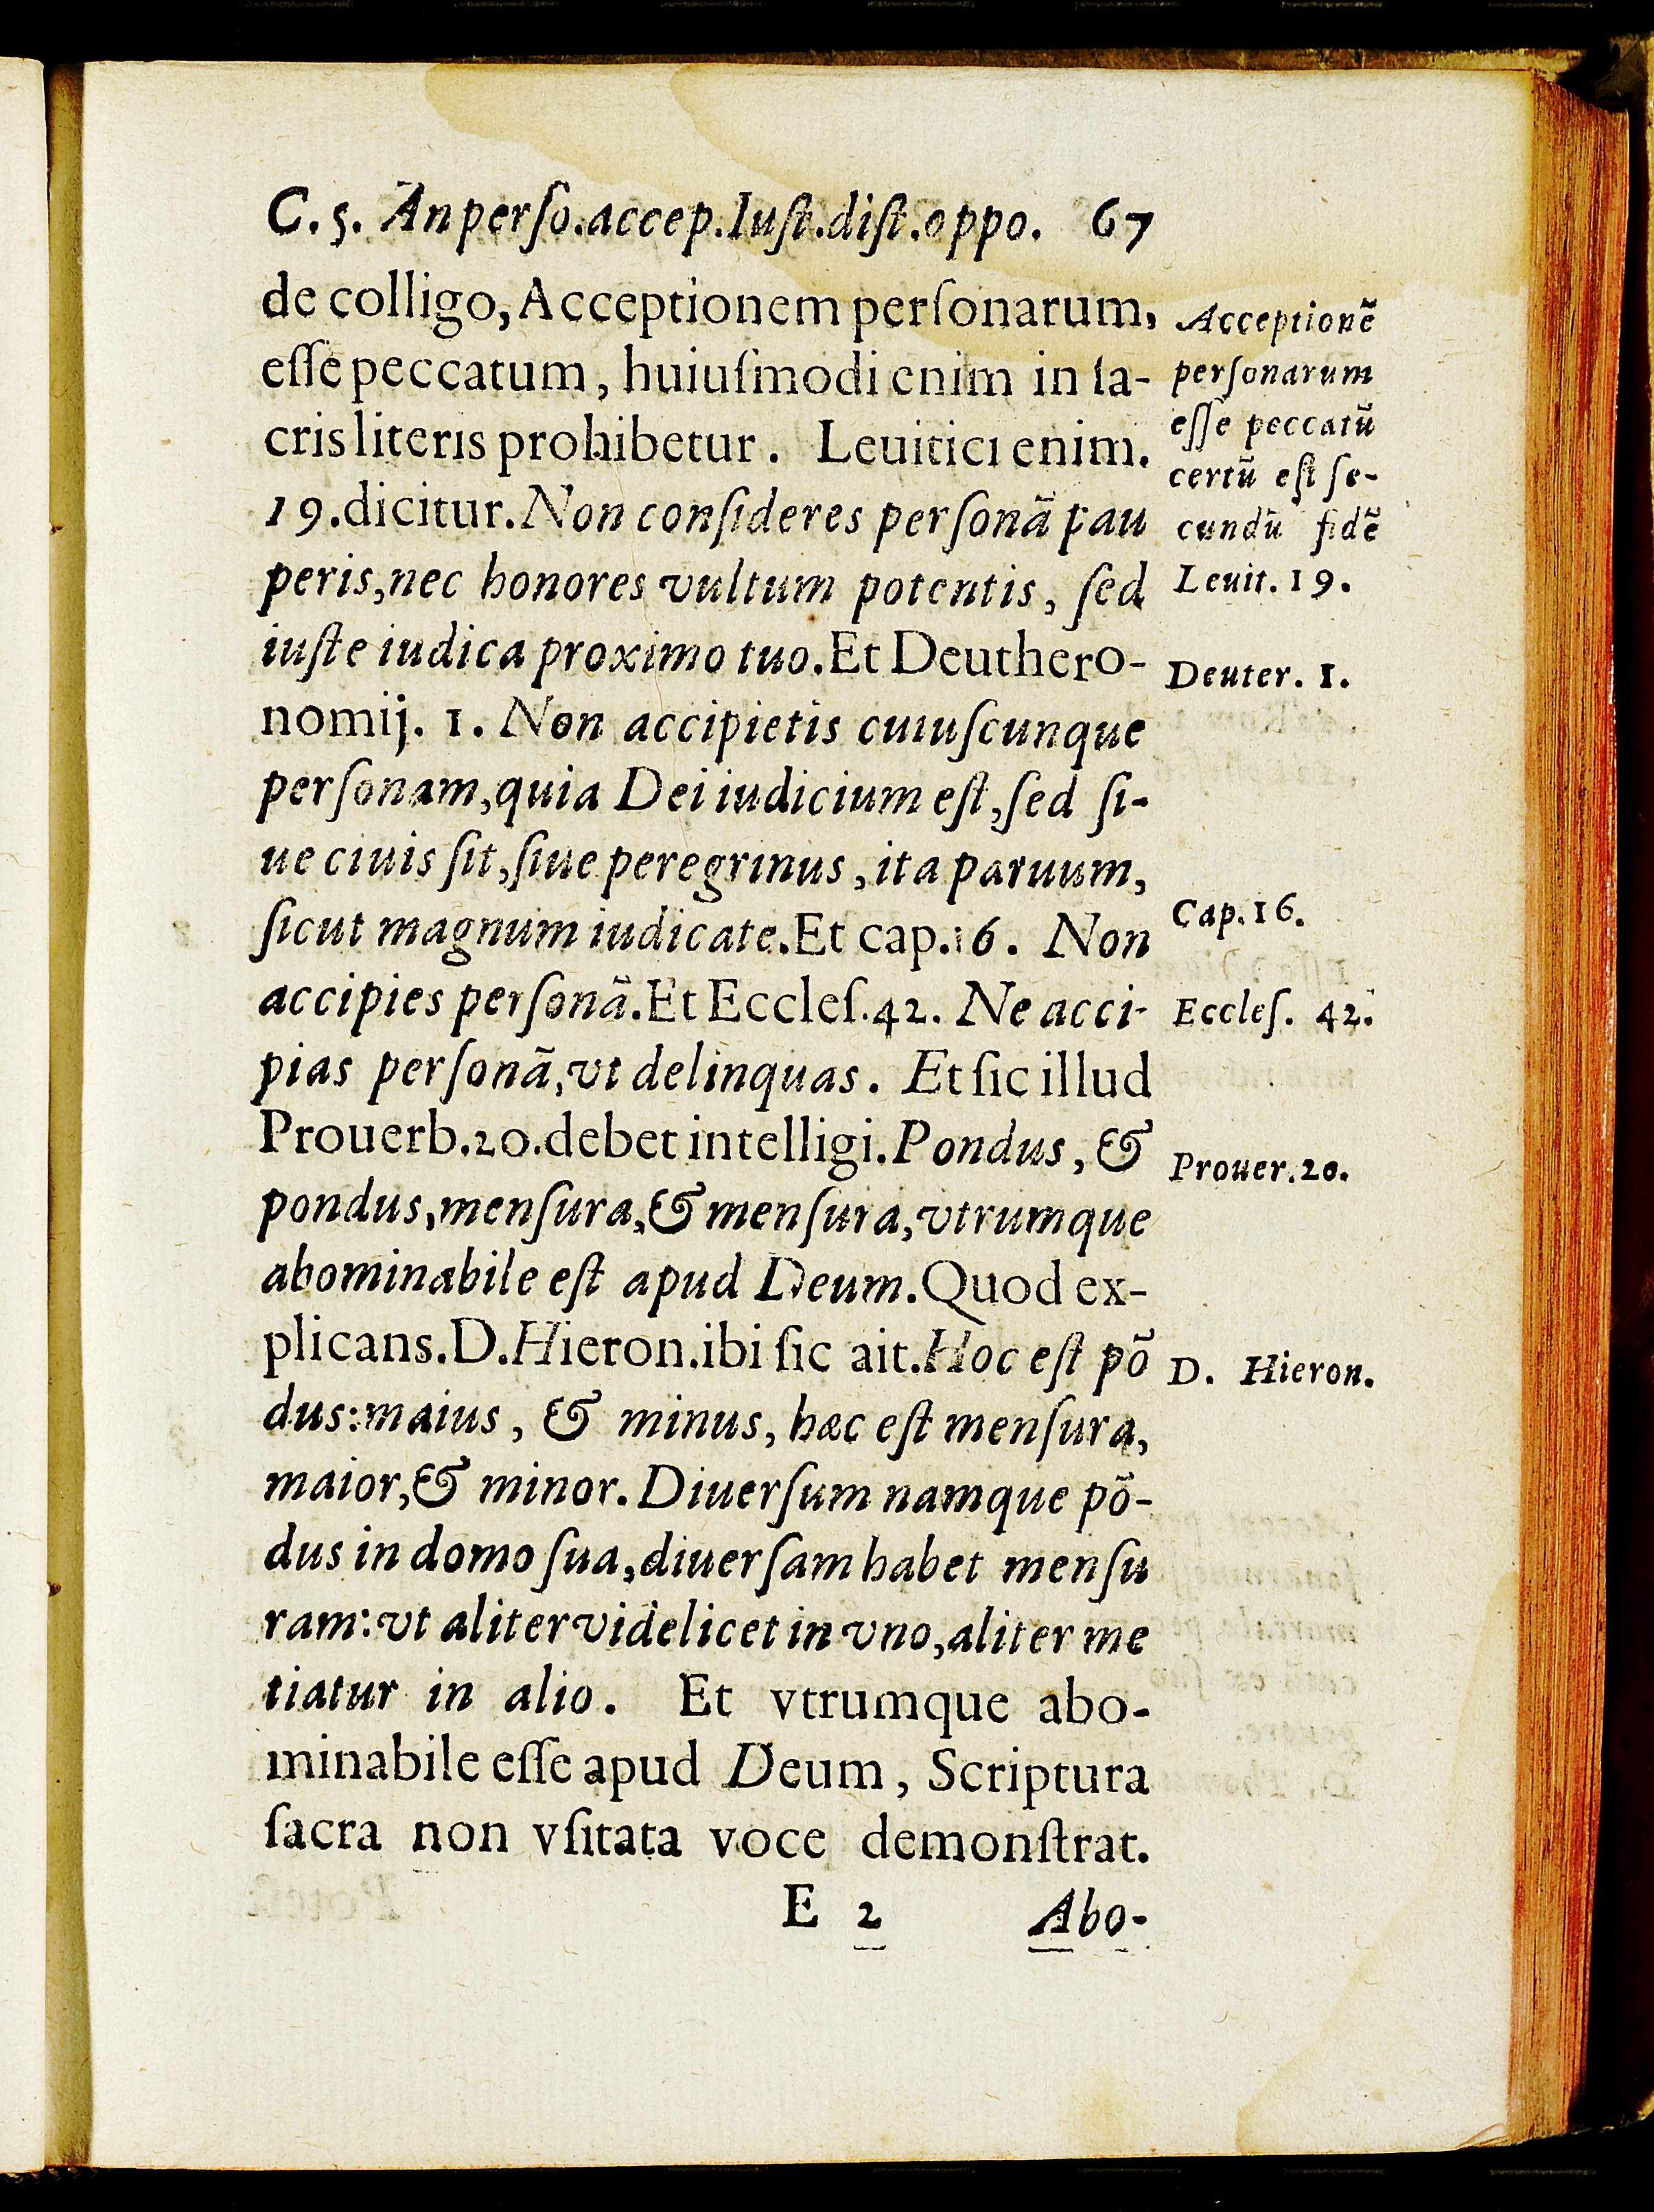 C. 5. An perso.accep.Iust.dist.oppo. 67
de colligo, Acceptionem personarum,
esse peccatum, huiusmodi enim in sa-
cris literis prohibetur. Leuitici enim.
19.dicitur. Non consideres personã pau
peris, nec honores vultum potentis, sed
iuste iudica proximo tuo. Et Deuthero-
nomij. 1. Non accipietis cuiuscunque
personam, quia Dei iudicium est, sed si-
ue ciuis sit, siue peregrinus, ita paruum,
sicut magnum iudicate. Et cap.16. Non
accipies personã. Et Eccles.42. Ne acci-
pias personã, vt delinquas. Et sic illud
Prouerb.20.debet intelligi. Pondus, &
pondus, mensura, & mensura, vtrumque
abominabile est apud Deum. Quod ex-
plicans. D. Hieron. ibi sic ait. Hoc est põ
dus: maius, & minus, hæc est mensura,
maior, & minor. Diuersum namque põ-
dus in domo sua, diuersam habet mensu
ram: vt aliter videlicet in vno, aliter me
tiatur in alio. Et vtrumque abo-
minabile esse apud Deum, Scriptura
sacra non vsitata voce demonstrat.
E 2 Abo-
Acceptionẽ
personarum
esse peccatũ
certũ est se-
cundũ fidẽ
Leuit. 19.
Deuter. 1.
Cap. 16.
Eccles. 42.
Prouer. 20.
D. Hieron.